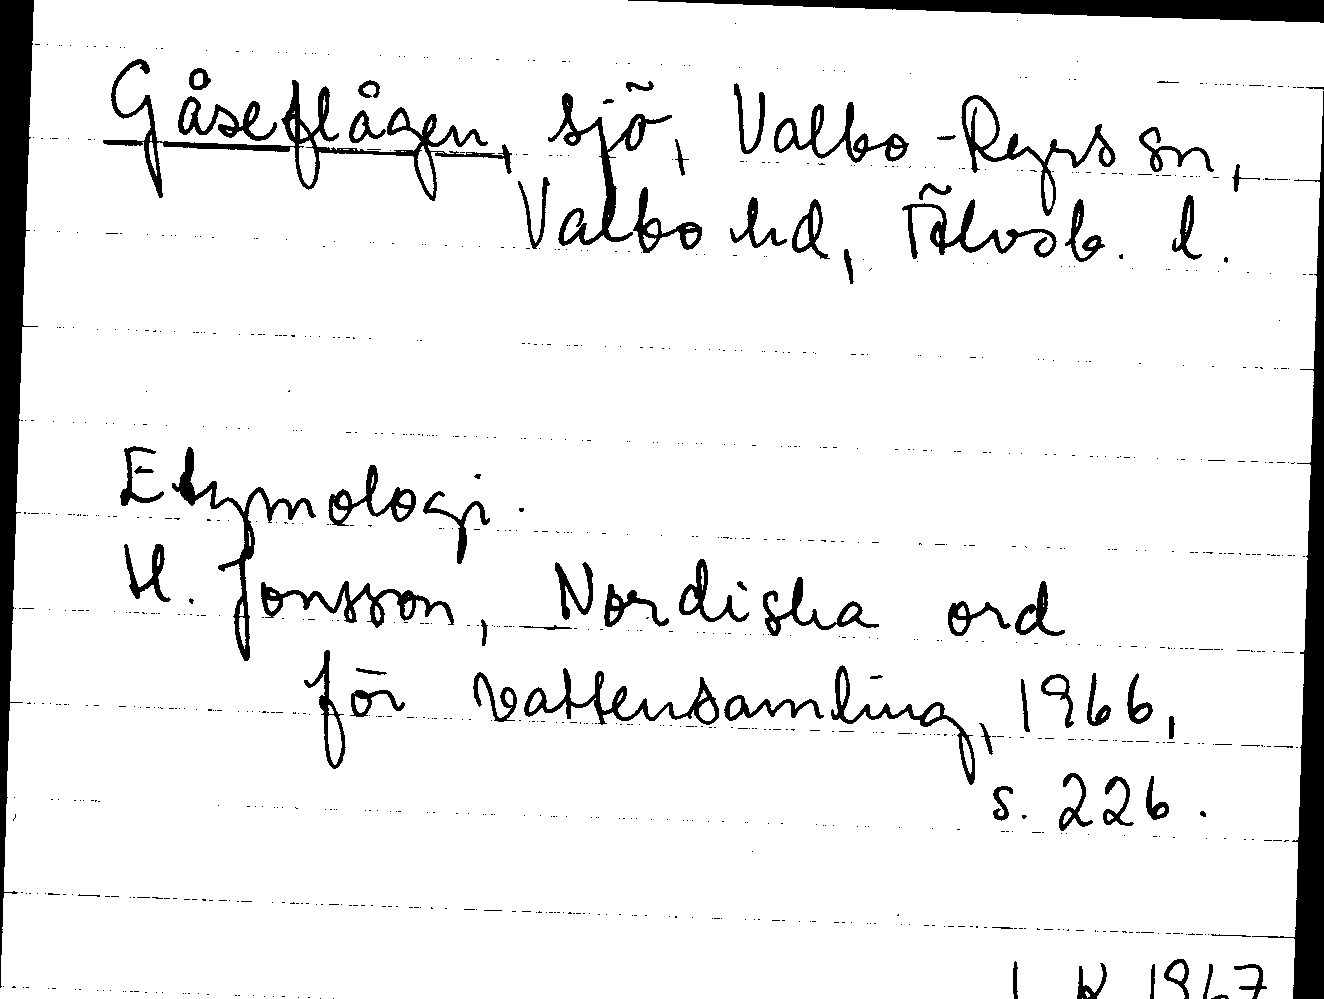 Gåseflågen, sjö, Valbo-Ryrs sn,
Valbo hd, Älvsb. l.
Etymologi.
H. Jonsson, Nordiska ord
för vattensamling, 1966,
s. 226.
1967